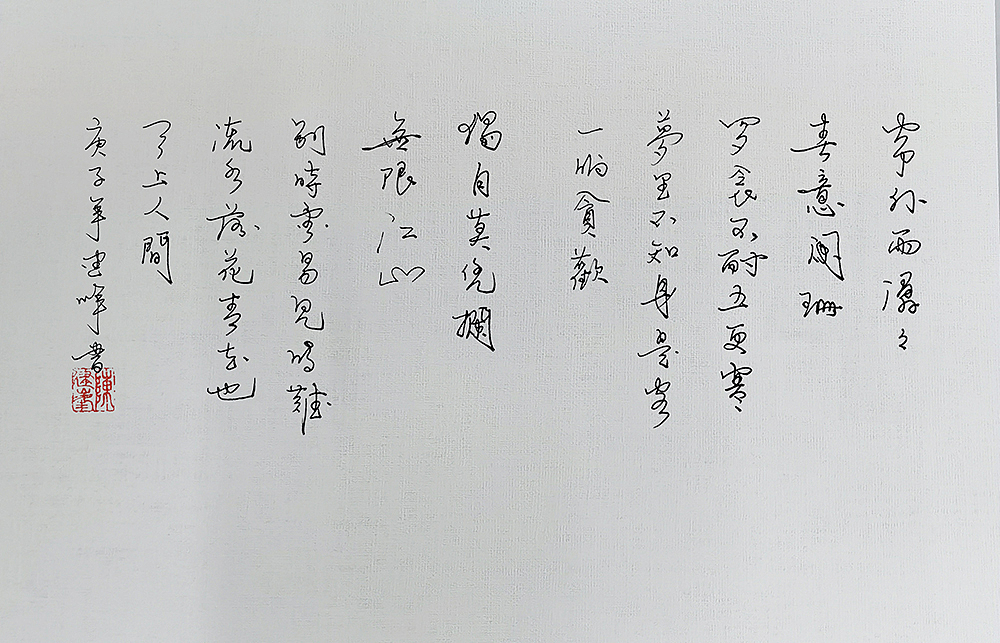 帘外雨潺々
春意闌珊
罗衾不耐五更寒
夢里不知身是客
一晌貪歡
獨自莫凭欄
無限江山
別時容易見時難
流水落花春去也
天上人間
庚子年建峰書
陳建峯